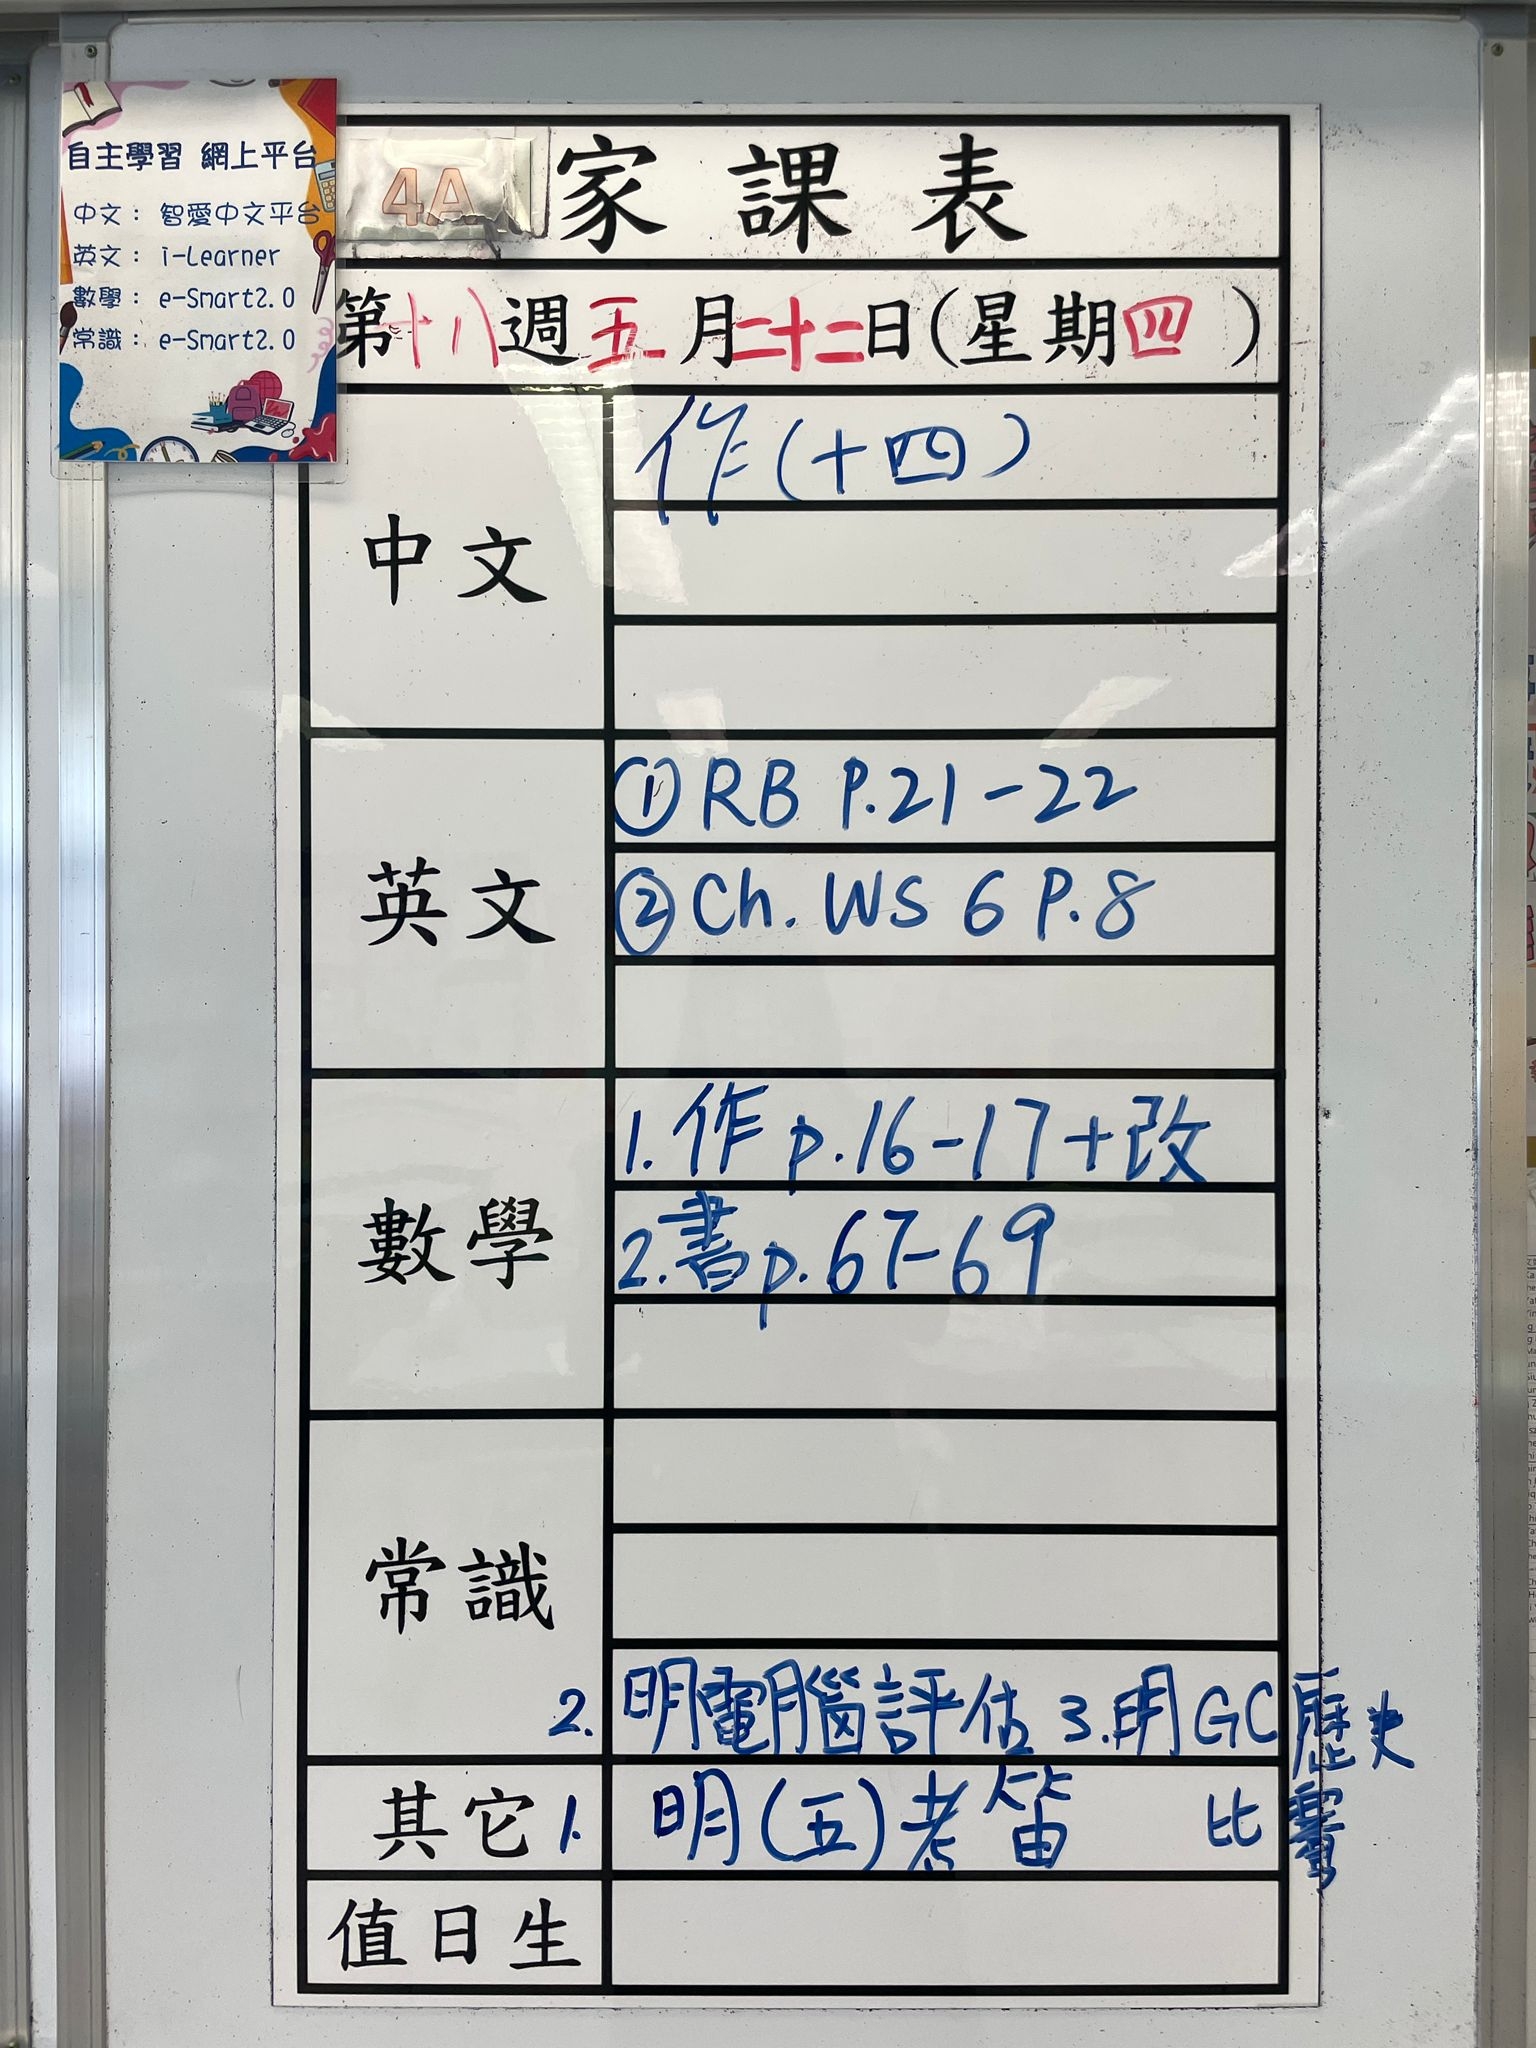 自主學習 網上平台
中文： 智愛中文平台
英文： i-Learner
數學： e-Smart2.0
常識： e-Smart2.0
4A 家課表
第十八週五月二十二日(星期四)
中文
作(十四)
英文
①RB P.21-22
②Ch. WS 6 P.8
數學
1.作 p.16-17+改
2.書p.67-69
常識
2. 明電腦評估 3.明GC歷史
其它 1. 明(五)考笛 比賽
值日生